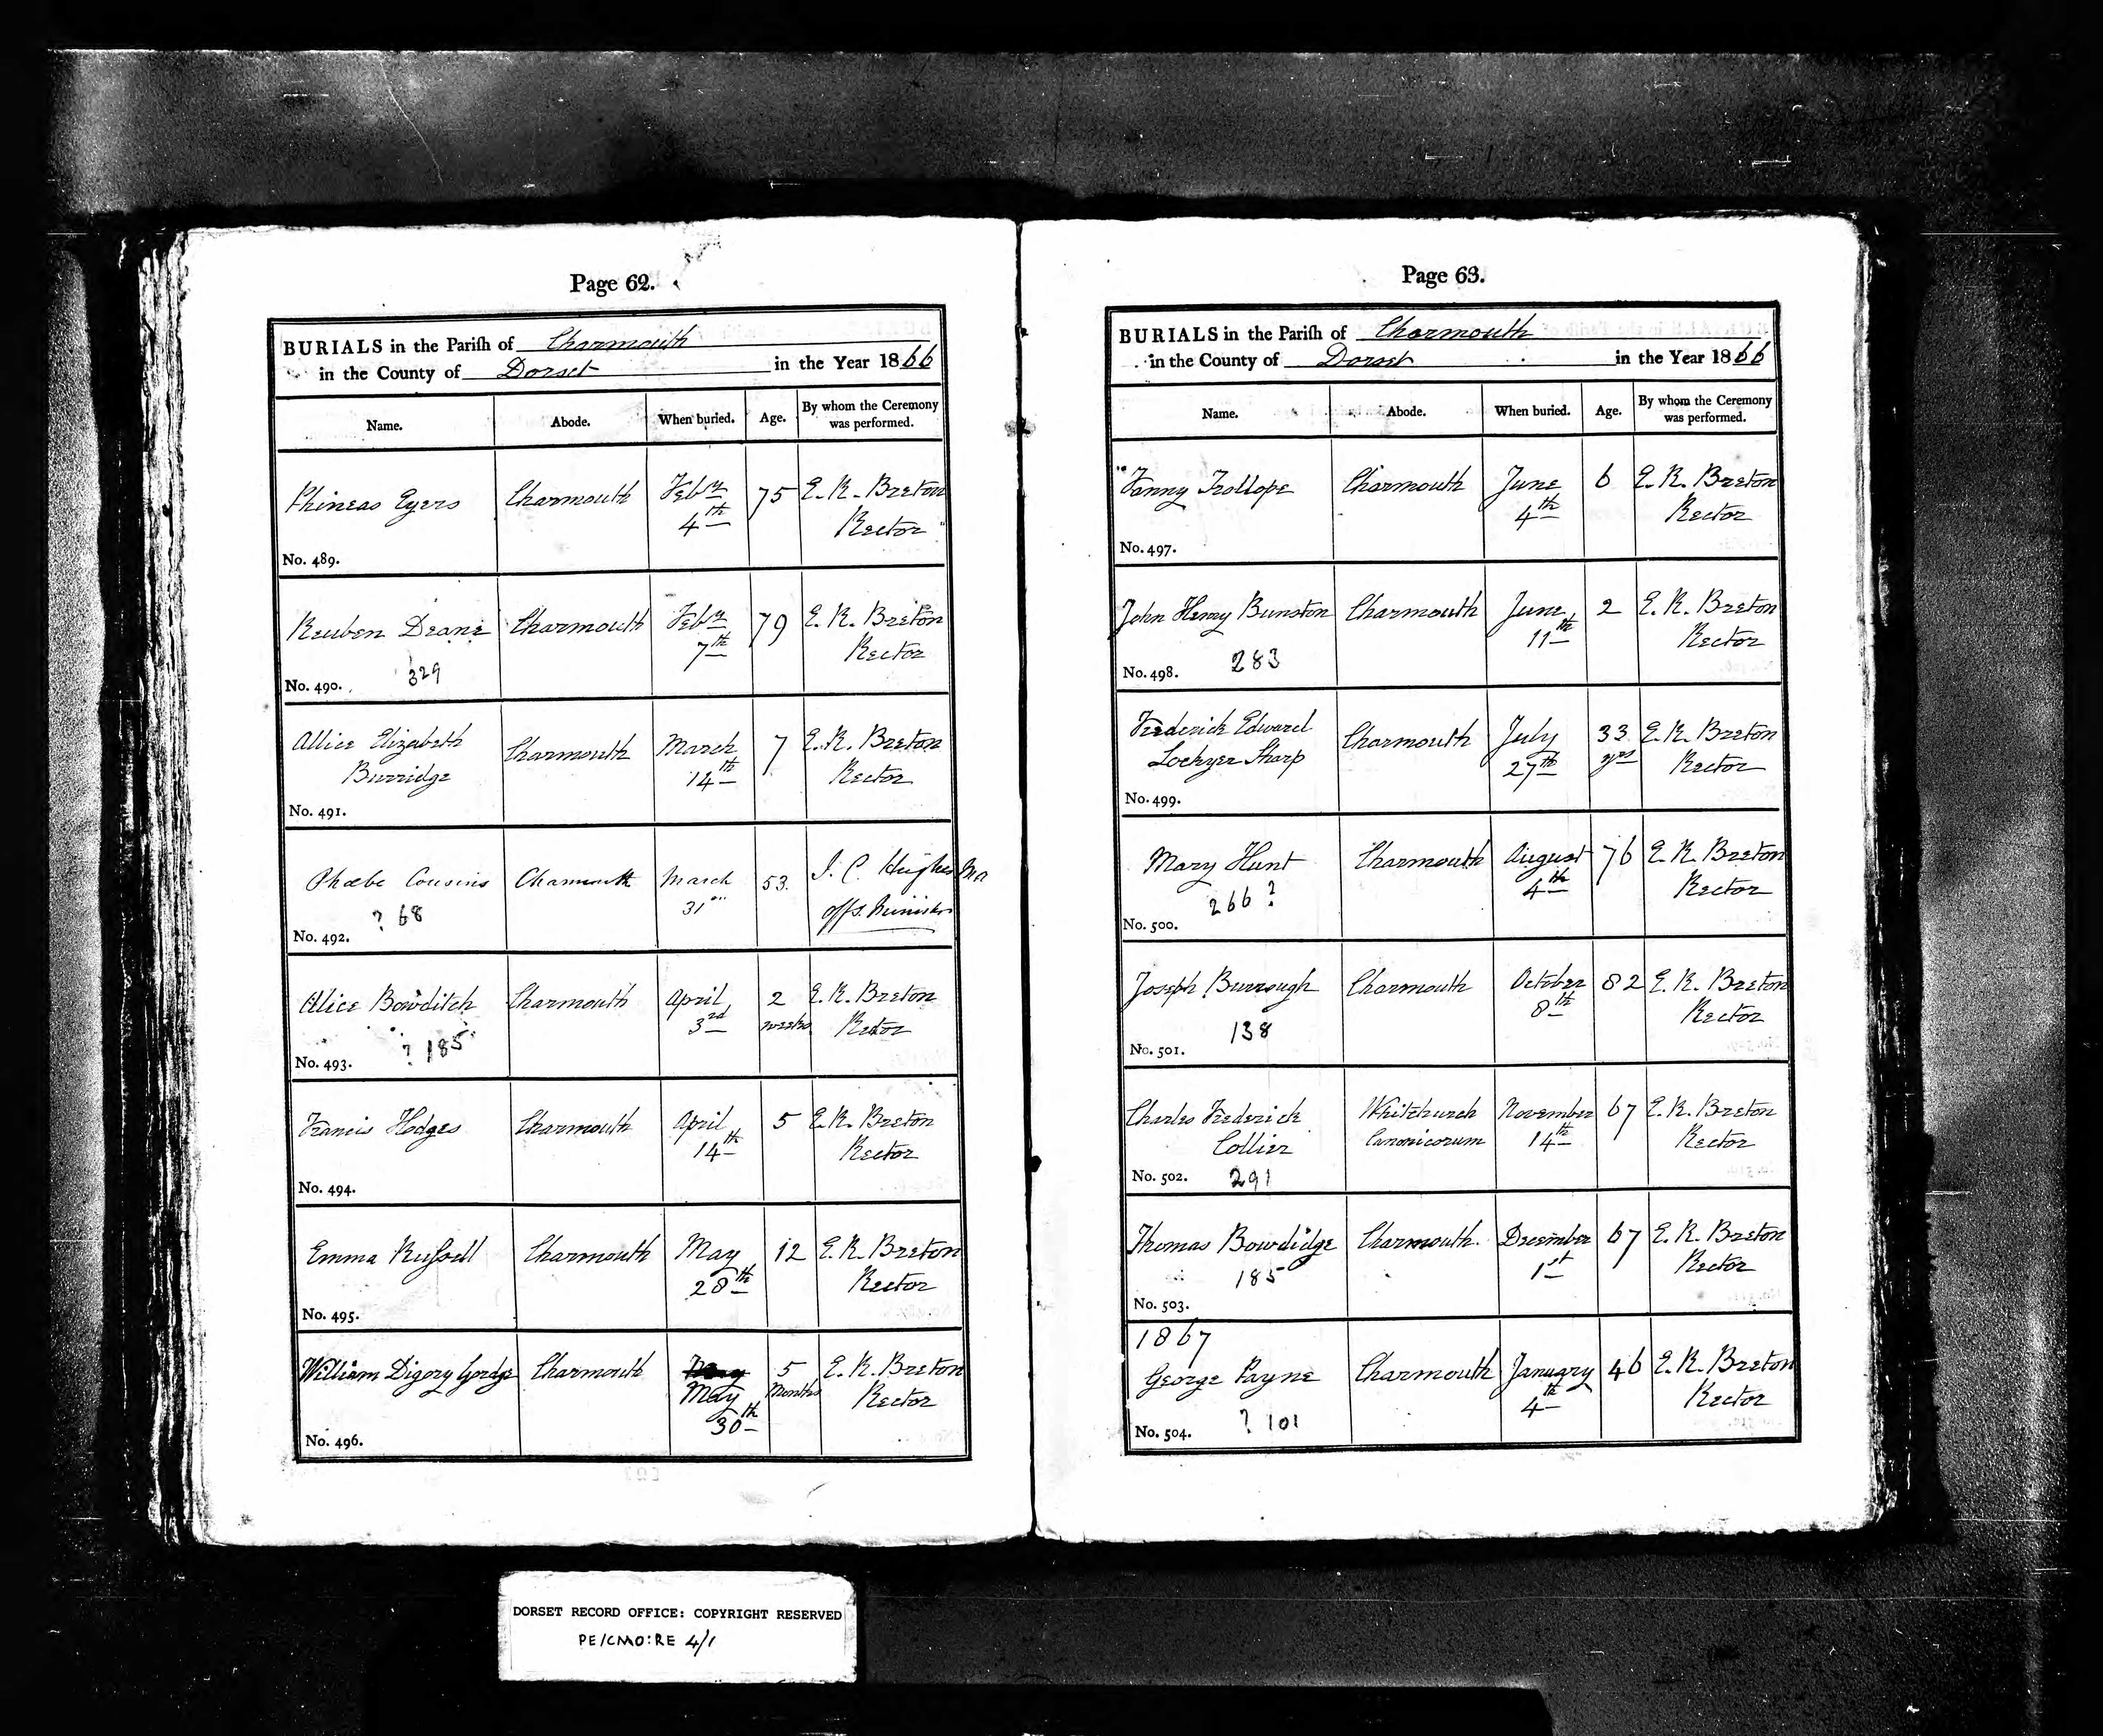 Page 62.
BURIALS in the Parish of Charmouth
in the County of Dorset in the Year 1866
Name. Abode. When buried. Age. By whom the Ceremony was performed.
Phineas Eyers Charmouth Feby 4th 75 E. R. Breton Rector
No. 489.
Reuben Deane Charmouth Feby 7th 79 E. R. Breton Rector
No. 490. 329
Allice Elizabeth Burridge Charmouth March 14th 7 E. R. Breton Rector
No. 491.
Phœbe Cousins Charmouth March 31st 53. J. C. Hughes MA Offg. Minister
? 68
No. 492.
Alice Bowditch Charmouth April 3rd 2 weeks E. R. Breton Rector
No. 493. ? 185
Francis Hodges Charmouth April 14th 5 E. R. Breton Rector
No. 494.
Emma Russell Charmouth May 28th 12 E. R. Breton Rector
No. 495.
William Digory Gordge Charmouth May 30th 5 Months E. R. Breton Rector
No. 496.
Page 63.
BURIALS in the Parish of Charmouth
in the County of Dorset in the Year 1866
Name. Abode. When buried. Age. By whom the Ceremony was performed.
Fanny Trollope Charmouth June 4th 6 E. R. Breton Rector
No. 497.
John Henry Bunston Charmouth June 11th 2 E. R. Breton Rector
No. 498. 283
Frederick Edward Lockyer Sharp Charmouth July 27th 33 yrs E. R. Breton Rector
No. 499.
Mary Hunt Charmouth August 4th 76 E. R. Breton Rector
266 ?
No. 500.
Joseph Burrough Charmouth October 8th 82 E. R. Breton Rector
138
No. 501.
Charles Frederick Collier Whitchurch Canonicorum November 14th 67 E. R. Breton Rector
No. 502. 291
Thomas Bowdidge Charmouth. December 1st 67 E. R. Breton Rector
185
No. 503.
1867
George Payne Charmouth January 4th 46 E. R. Breton Rector
No. 504. ? 101
DORSET RECORD OFFICE: COPYRIGHT RESERVED
PE/CMO:RE 4/1